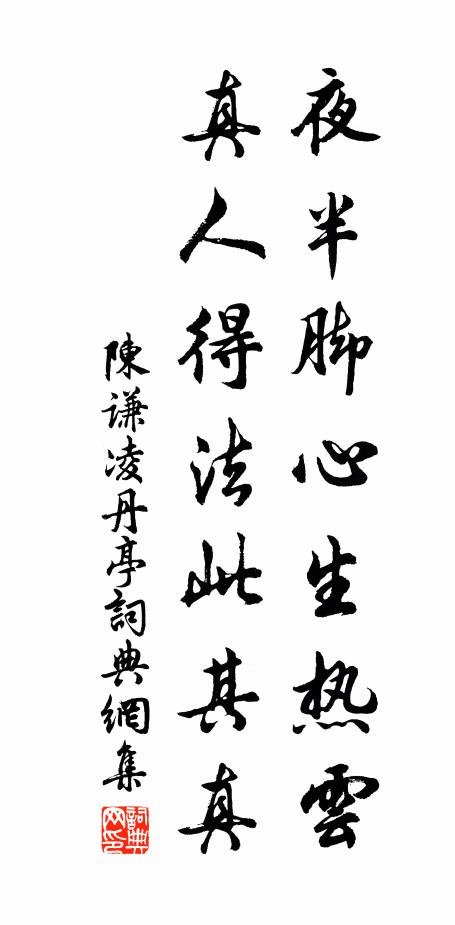 夜半脚心生热雲
真人得法此其真
陳謙凌丹亭詞典網集
詞典网印